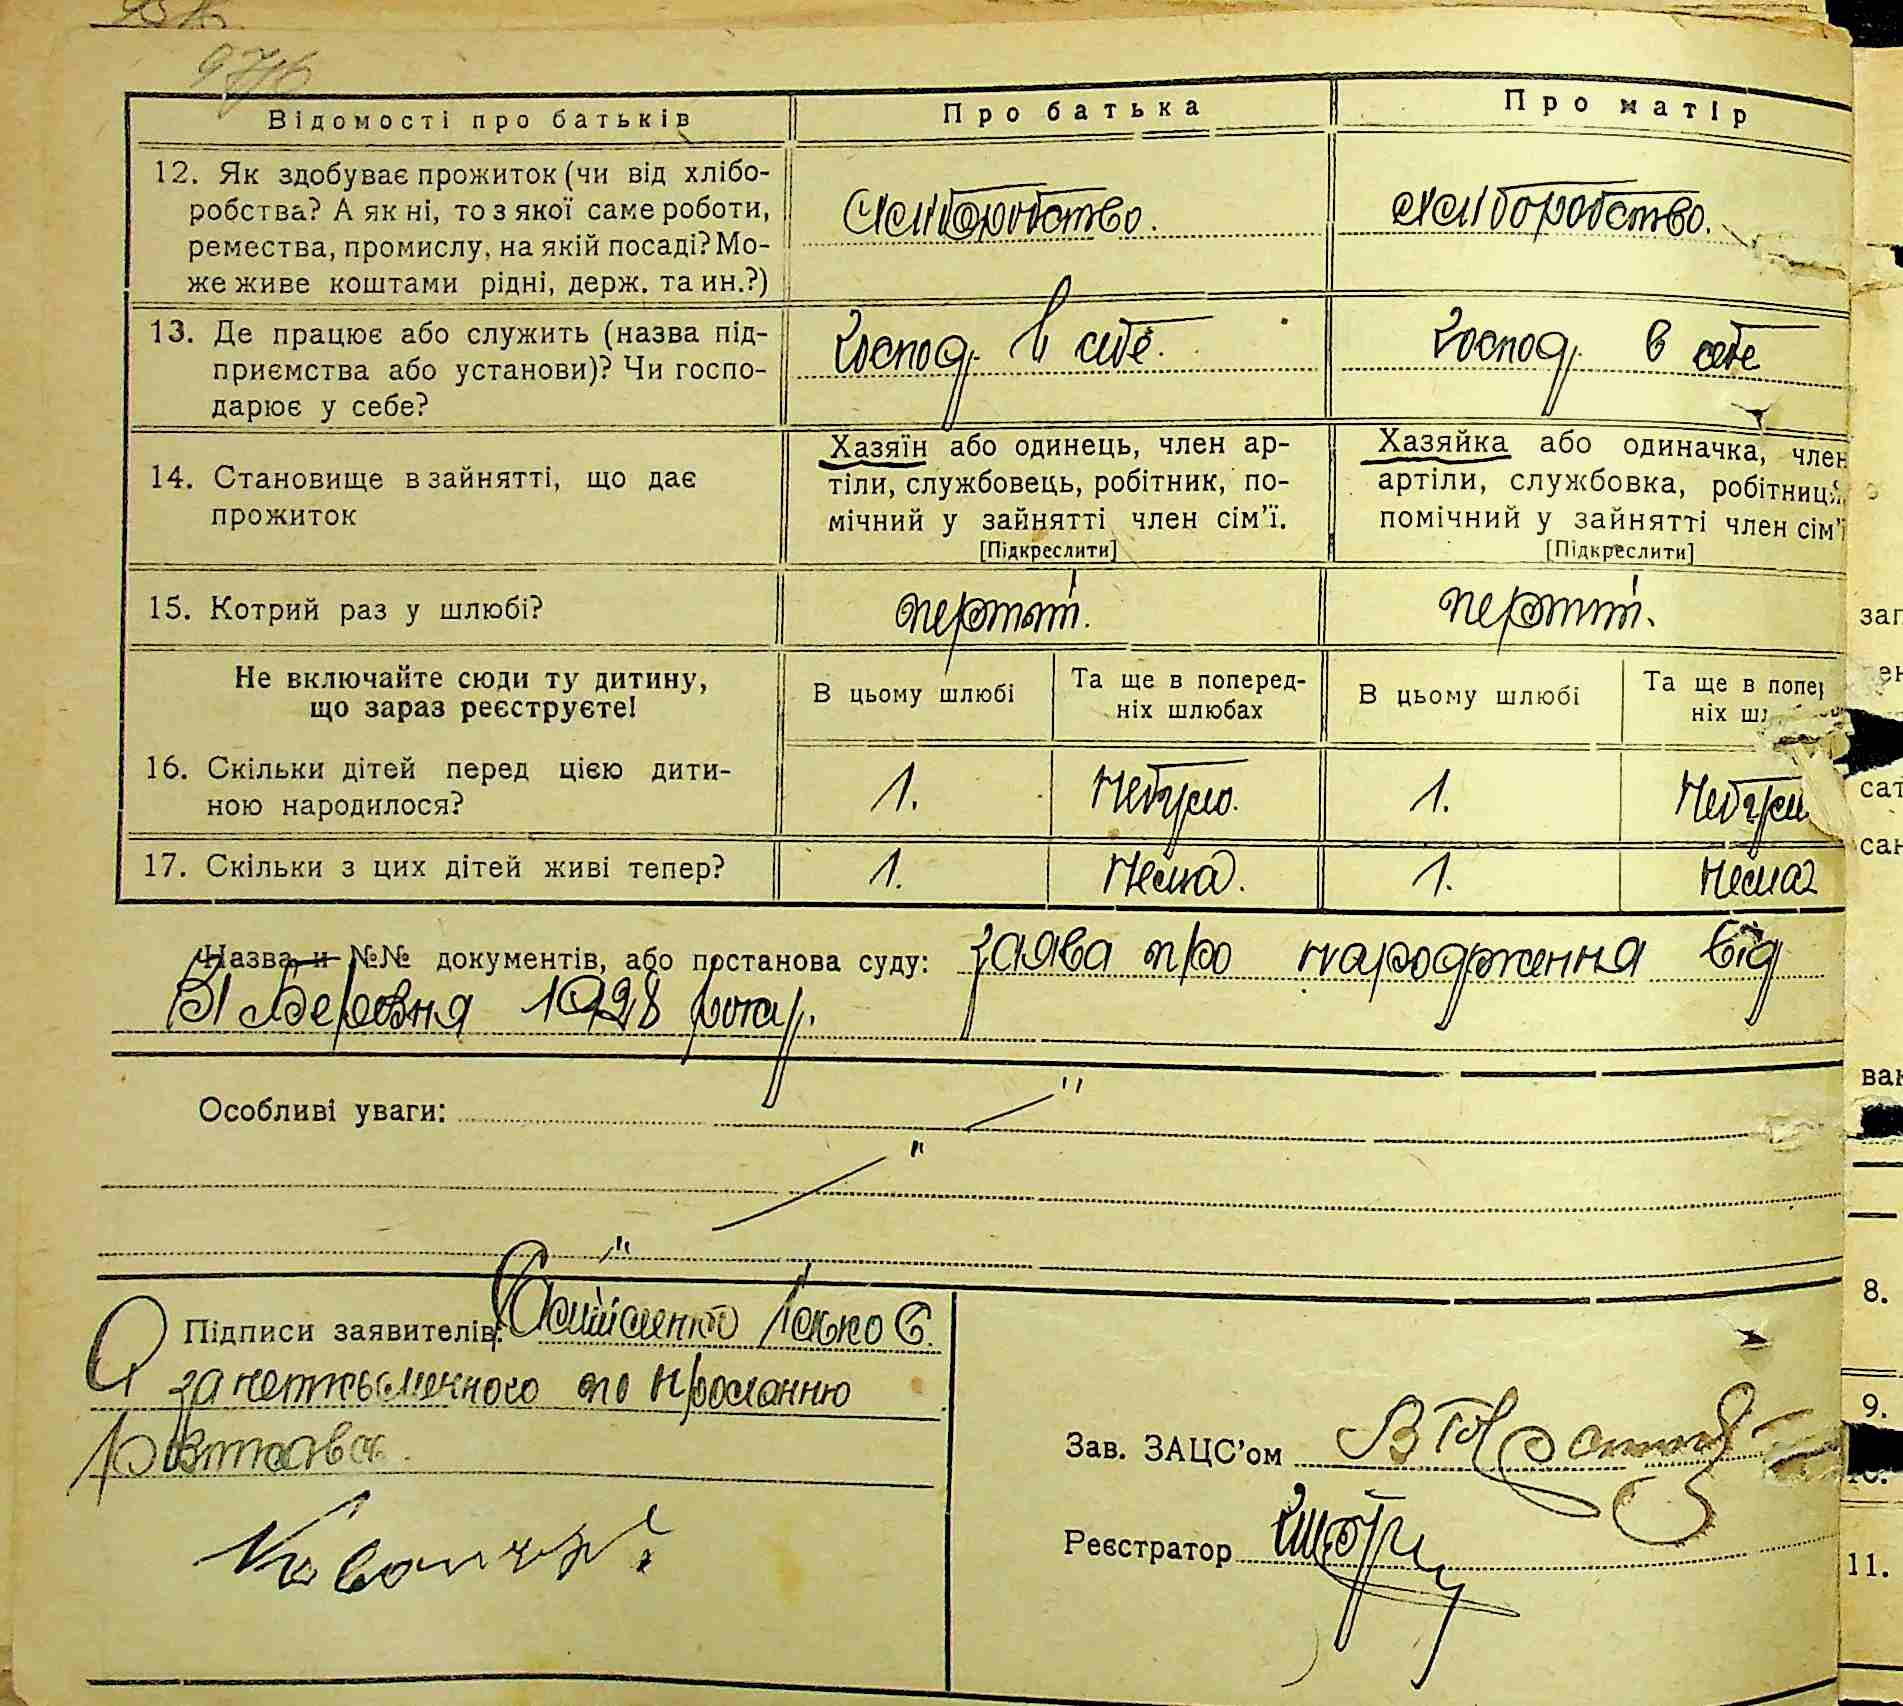 Відомості про батьків Про батька Про матір
12. Як здобуває прожиток (чи від хлібо-
робства? А як ні, то з якої саме роботи,
ремества, промислу, на якій посаді? Мо-
же живе коштами рідні, держ. та ин.?)
хліборобство. хліборобство.
13. Де працює або служить (назва під-
приємства або установи)? Чи госпо-
дарює у себе?
Господ. в себе. Господ. в себе
14. Становище в зайнятті, що дає
прожиток
Хазяїн або одинець, член ар-
тіли, службовець, робітник, по-
мічний у зайнятті член сім’ї.
[Підкреслити]
Хазяйка або одиначка, член
артіли, службовка, робітниця,
помічний у зайнятті член сім’ї
[Підкреслити]
15. Котрий раз у шлюбі?
перший. перший.
Не включайте сюди ту дитину,
що зараз реєструєте!
В цьому шлюбі Та ще в поперед-
ніх шлюбах
В цьому шлюбі Та ще в попер
ніх шл
16. Скільки дітей перед цією дити-
ною народилося?
1. Небуло. 1. Небуло
17. Скільки з цих дітей живі тепер?
1. Нема. 1. Нема
Назва и №№ документів, або постанова суду: заява про народження від
31 Березня 1928 року.
Особливі уваги:
Підписи заявителів:
А за неписьменного по проханню
Зав. ЗАЦС’ом
Реєстратор
зап
сат
сан
вак
8.
9.
10.
11.